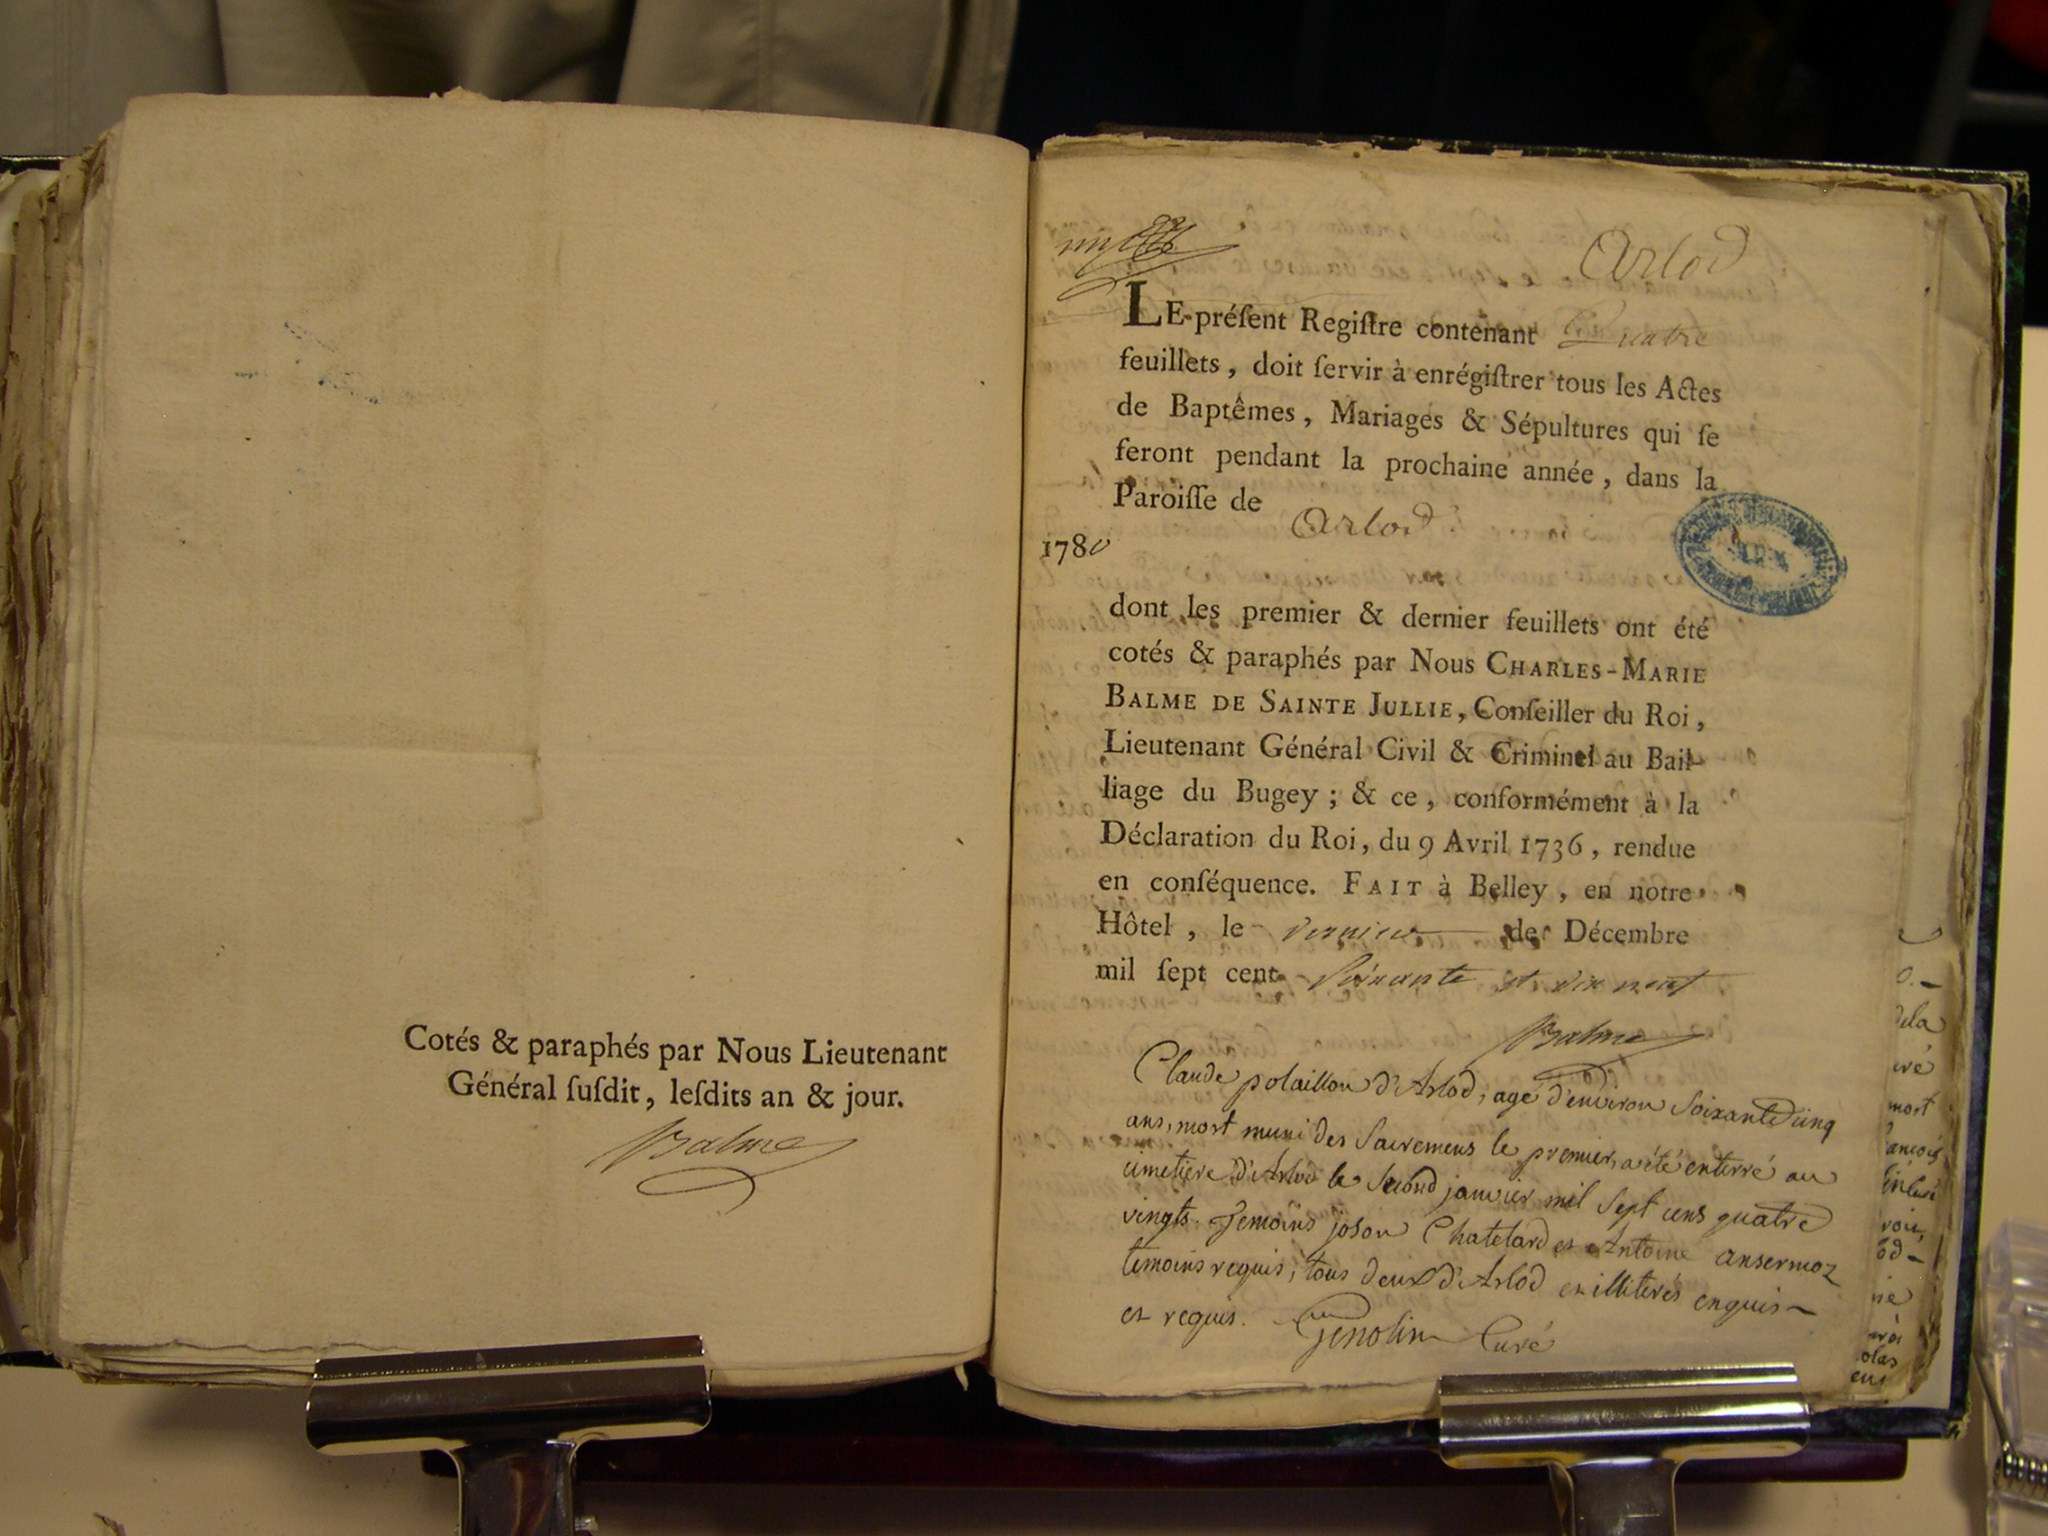 Cotés & paraphés par Nous Lieutenant
Général ſuſdit, leſdits an & jour.
Balme
Arlod
LE préſent Regiſtre contenant quatre
feuillets, doit ſervir à enrégiſtrer tous les Actes
de Baptêmes, Mariages & Sépultures qui ſe
feront pendant la prochaine année, dans la
Paroiſſe de Arlod
1780
dont les premier & dernier feuillets ont été
cotés & paraphés par Nous CHARLES-MARIE
BALME DE SAINTE JULLIE, Conſeiller du Roi,
Lieutenant Général Civil & Criminel au Bail-
liage du Bugey ; & ce, conformément à la
Déclaration du Roi, du 9 Avril 1736, rendue
en conſéquence. FAIT à Belley, en notre
Hôtel, le dernier de Décembre
mil ſept cent Soixante et dix neuf
Balme
Claude polaillon d'Arlod, agé d'environ Soixante cinq
ans, mort muni des Sacremens le premier, a été enterré au
cimetiere d'Arlod le Second janvier mil Sept cens quatre
vingts. Temoins Chatelard et Antoine ansermoz
temoins requis, tous deux d'Arlod et illiterés enquis
et requis. Genolin Curé
dela
mort